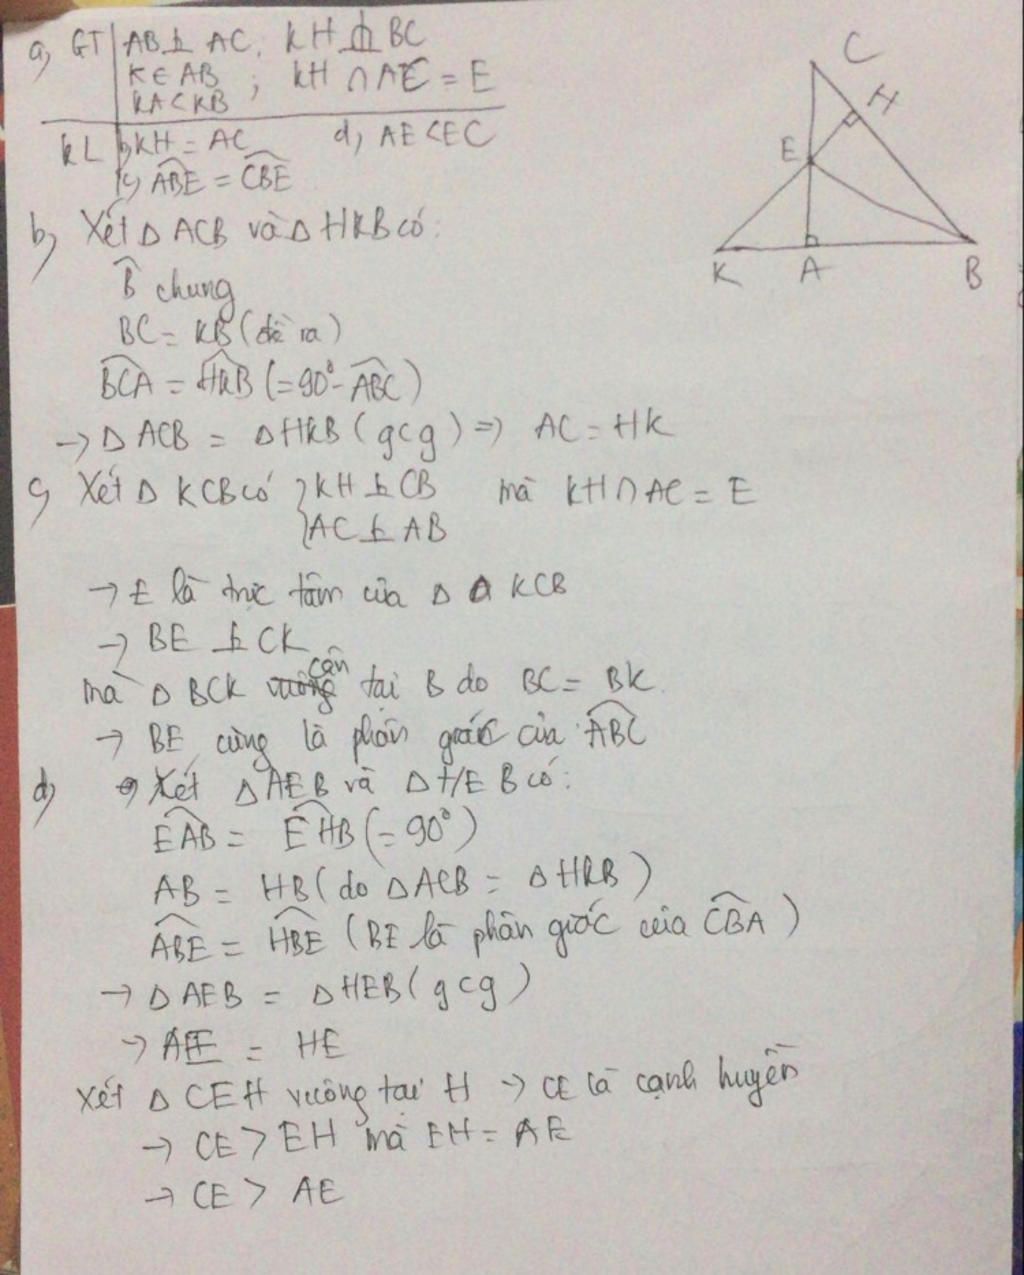 a, GT | AB ⊥ AC, KH ⊥ BC
K ∈ AB ; KH ∩ AE = E
KA < KB
KL | b, KH = AC d, AE < EC
c, ABE = CBE
C
H
E
K A B
b, Xét Δ ACB và Δ HKB có:
B chung
BC = KB (đề ra)
BCA = HKB (= 90° - ABC)
→ Δ ACB = Δ HKB (gcg) => AC = HK
c, Xét Δ KCB có { KH ⊥ CB mà KH ∩ AC = E
AC ⊥ AB
→ E là trực tâm của Δ Δ KCB
→ BE ⊥ CK
mà Δ BCK vuông cân tại B do BC = BK
→ BE cũng là phân giác của ABC
d, Xét Δ AEB và Δ HEB có:
EAB = EHB (= 90°)
AB = HB (do Δ ACB = Δ HKB)
ABE = HBE (BE là phân giác của CBA)
→ Δ AEB = Δ HEB (gcg)
→ AE = HE
Xét Δ CEH vuông tại H → CE là cạnh huyền
→ CE > EH mà EH = AE
→ CE > AE